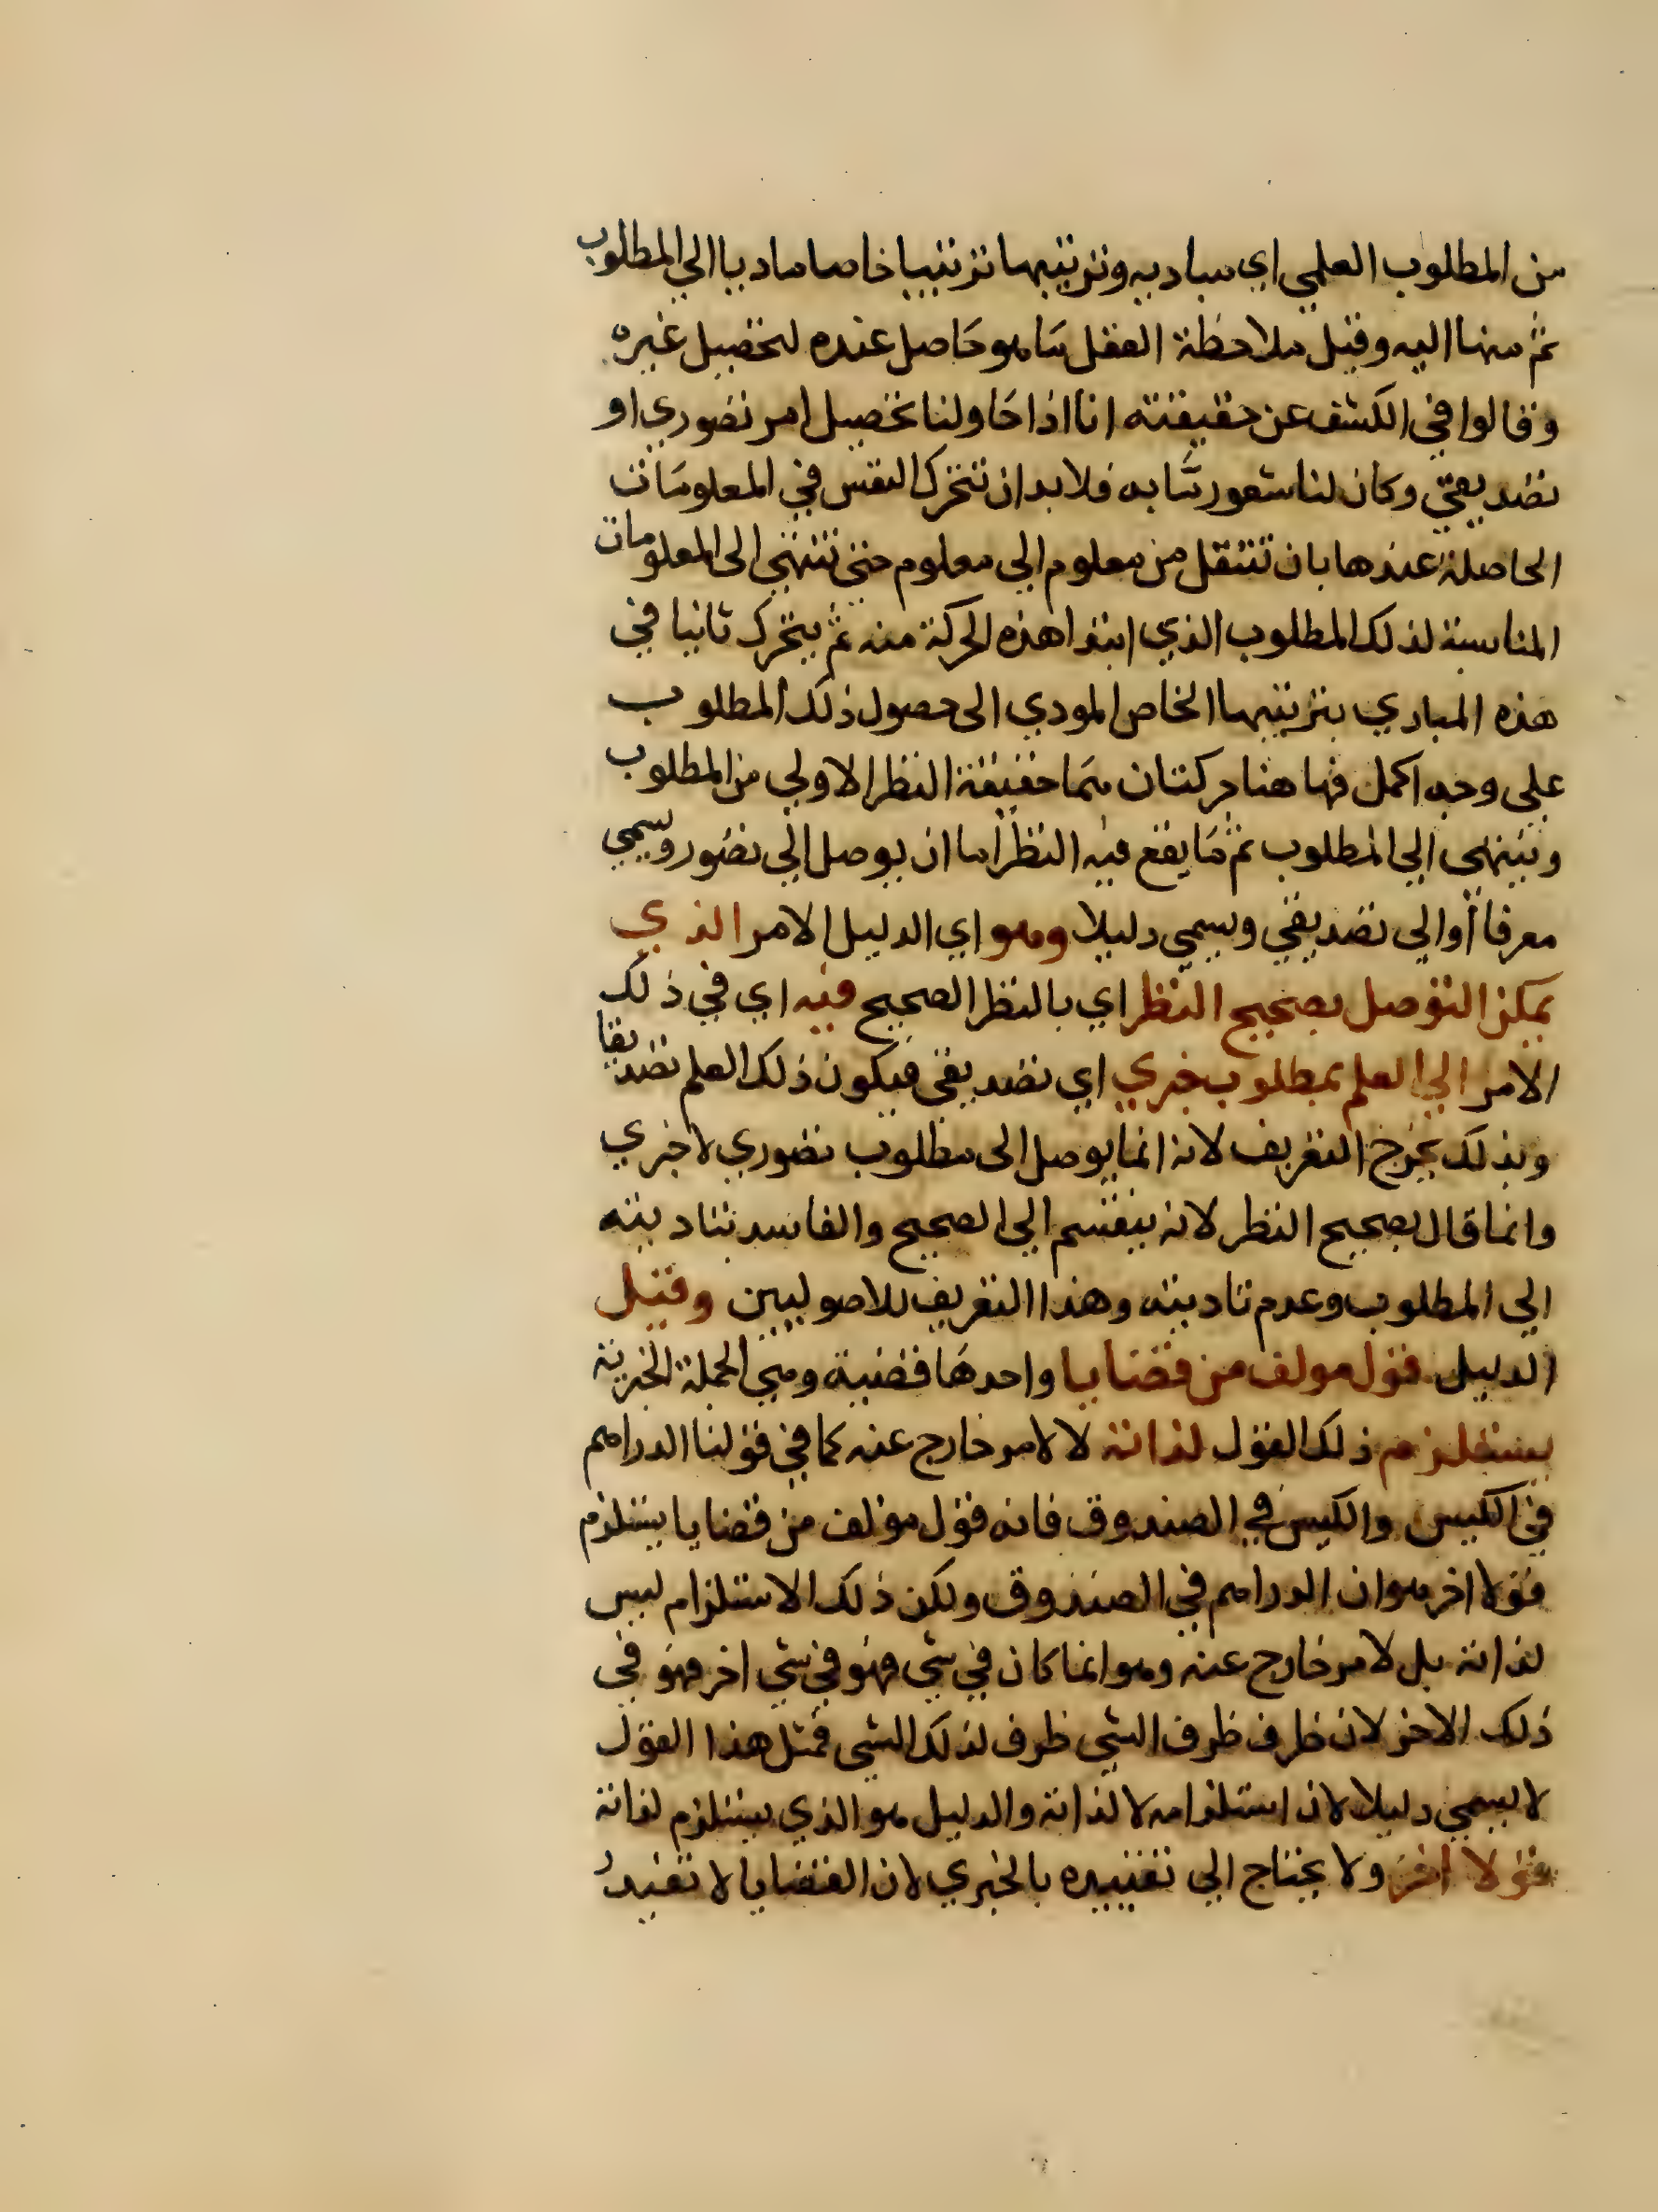 من المطلوب العلمي اي مباديه وترتيبها ترتيبا خاصا ماديا الي المطلوب
ثم منها اليه وقيل ملاحظة العقل ما هو حاصل عنده لتحصيل غيره
وقالوا في الكشف عن حقيقته انا اذا حاولنا تحصيل امر تصوري او
تصديقي وكان لنا شعور ما به فلا بد ان تتحرك النفس في المعلومات
الحاصلة عندها بان تنتقل من معلوم الي معلوم حتى تنتهي الى المعلومات
المناسبة لذلك المطلوب الذي ابتدا هذه الحركة منه ثم يتحرك ثانيا في
هذه المبادي بترتيبها الخاص المودي الى حصول ذلك المطلوب
على وجه اكمل فها هنا حركتان هما حقيقة النظر الاولي من المطلوب
وتنتهي الي المطلوب ثم ما يقع فيه النظر اما ان يوصل الي تصور ويسمي
معرفا أو الي تصديقي ويسمي دليلا وهو اي الدليل الامر الذي
يمكن التوصل بصحيح النظر اي بالنظر الصحيح فيه اي في ذلك
الامر الي العلم بمطلوب خبري اي تصديقي فيكون ذلك العلم تصديقا
وبذلك يخرج التعريف لانه انما يوصل الى مطلوب تصوري لا خبري
وانما قال بصحيح النظر لانه ينقسم الي الصحيح والفاسد بتاديته
الي المطلوب وعدم تاديته وهذا التعريف للاصوليين وقيل
الدليل قول مولف من قضايا واحدها قضية وهي الجملة الخبرية
يستلزم ذلك القول لذاته لا لامر خارج عنه كما في قولنا الدراهم
في الكيس والكيس في الصندوق فانه قول مولف من قضايا يستلزم
قولا اخر هو ان الدراهم في الصندوق ولكن ذلك الاستلزام ليس
لذاته بل لامر خارج عنه وهو انما كان في شي فهو في شي اخر فهو في
ذلك الاخر لان ظرف ظرف الشي ظرف لذلك الشي فمثل هذا القول
لا يسمي دليلا لان استلزامه لا لذاته والدليل هو الذي يستلزم لذاته
قولا اخر ولا يحتاج الي تقييده بالخبري لان القضايا لا تفيد